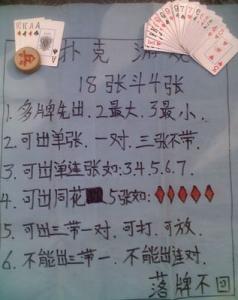 扑克游戏
18张斗4张
1.多牌先出.2最大.3最小.
2.可出单张.一对.三张不带.
3.可出单连张如:3.4.5.6.7.
4.可出同花5张如:
5.可出三带一对.可打.可放.
6.不能出三带一.不能出连对.
落牌不回